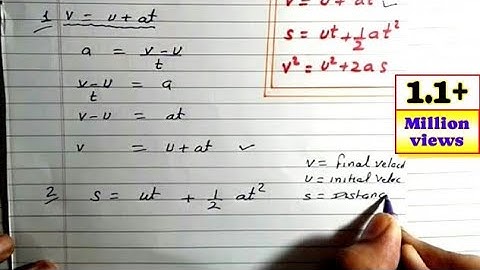 1 v = u + at
a = v-u/t
v-u/t = a
v-u = at
v = u + at ✓
2 s = ut + 1/2 at²
v = u + at ✓
s = ut + 1/2 at²
v² = u² + 2as
1.1+
Million
views
v = final veloci
u = initial veloc
s = Distanc